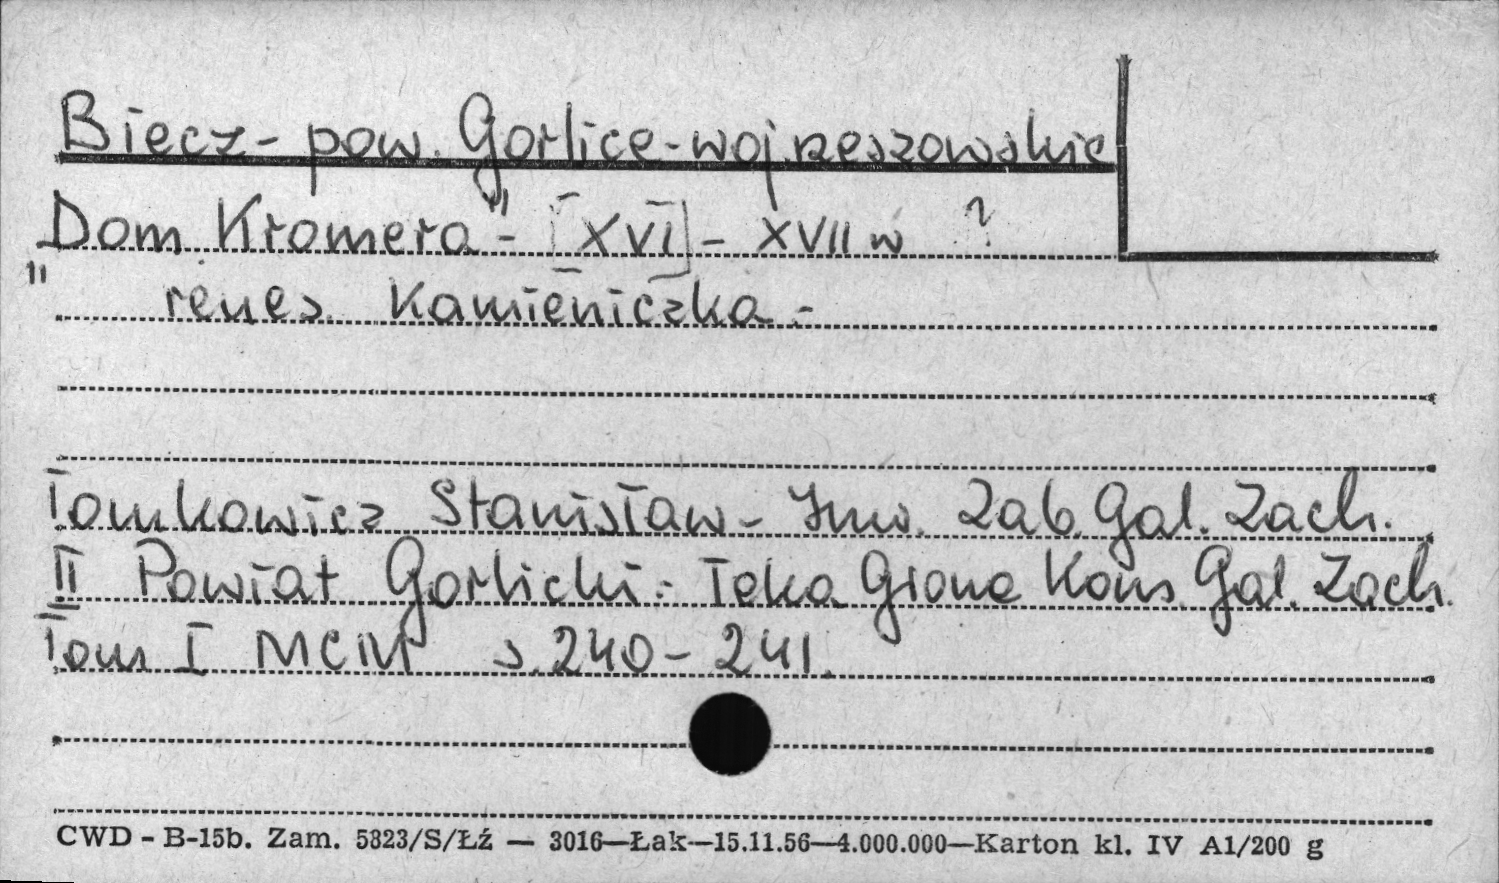 Biecz - pow. Gorlice - woj. rzeszowskie
„Dom Kromera" - [XVI] - XVII w ?
renes. kamieniczka. -
Tomkowicz Stanisław - Inw. Zab. Gal. Zach.
II Powiat Gorlicki. - Teka Grona Kons. Gal. Zach.
Tom I MCM s. 240 - 241.
CWD - B-15b. Zam. 5823/S/Łź — 3016—Łak—15.11.56—4.000.000—Karton kl. IV A1/200 g